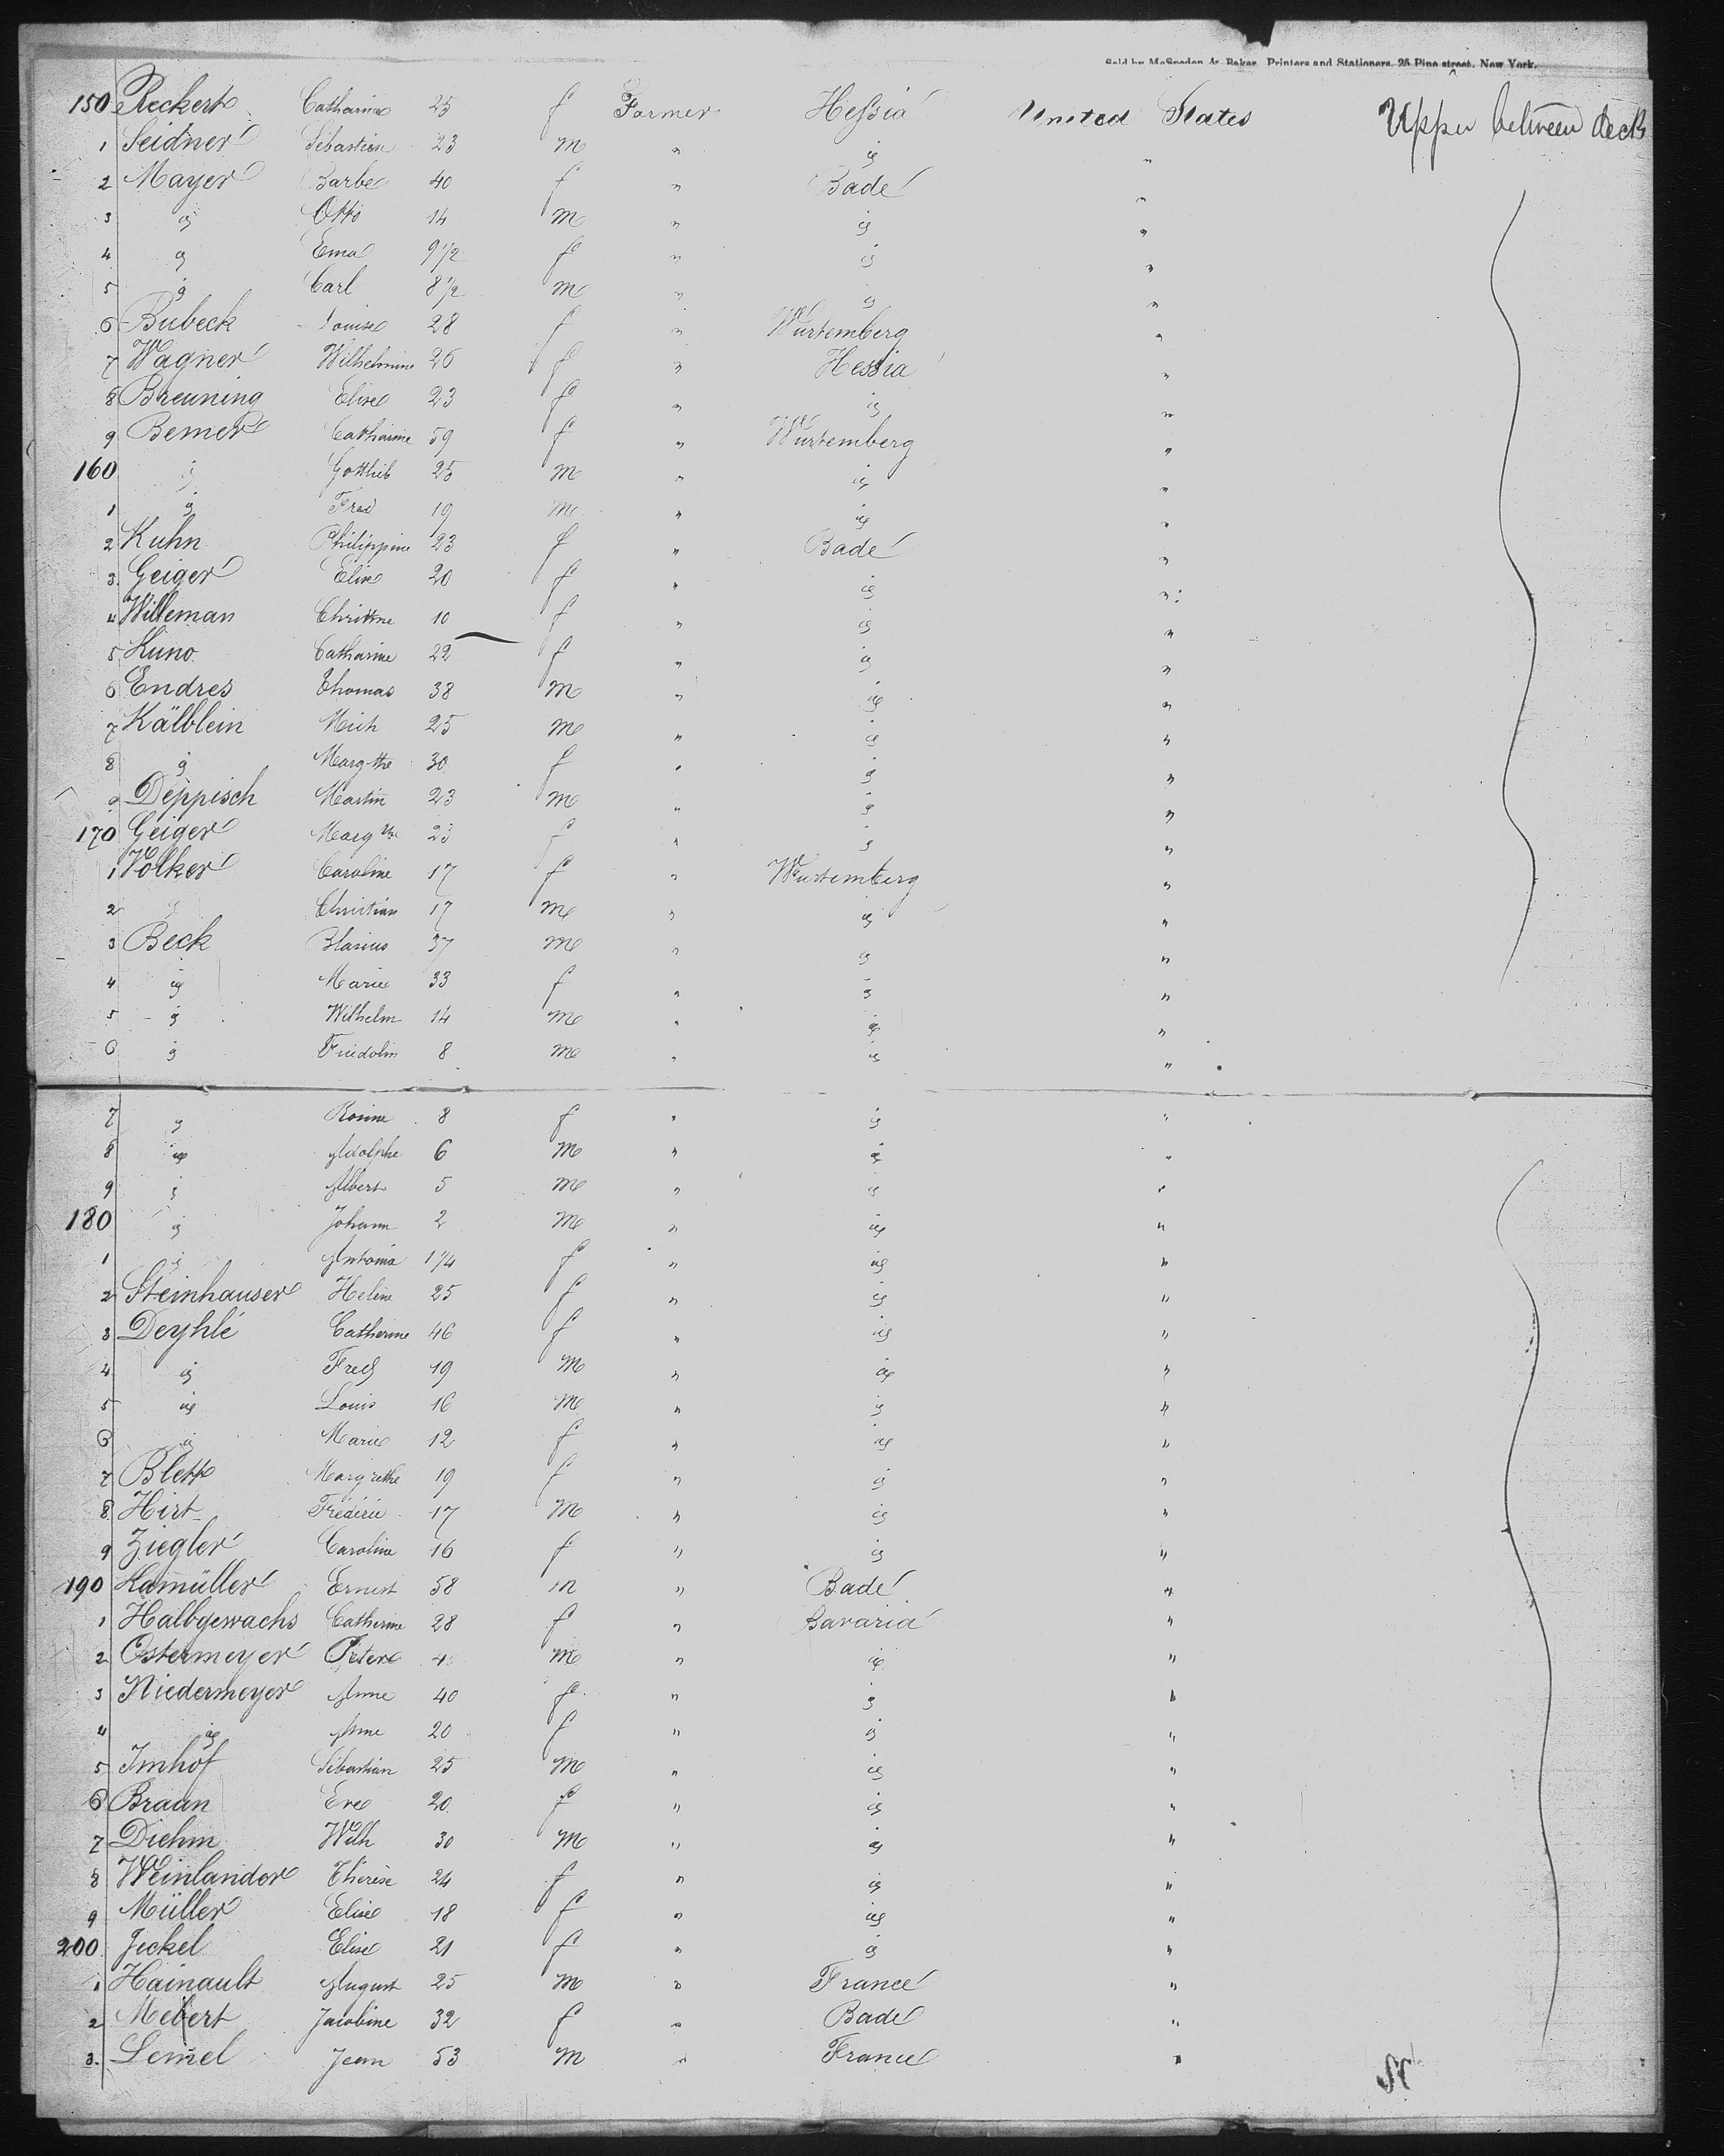 Sold by McSpedon & Baker, Printers and Stationers, 25 Pine street, New York.
150 Reckert Catharine 25 f Farmer Hessia United States Upper between deck
1 Seidner Sebastian 23 m " ig "
2 Mayer Barbe 40 f " Bade "
3 ig Otto 14 m " ig "
4 ig Ema 9 1/2 f " ig "
5 ig Carl 8 1/2 m " ig "
6 Bubeck Louise 28 f " Wurtemberg "
7 Wagner Wilhelmine 26 f " Hessia "
8 Breuning Elise 23 f " ig "
9 Bemer Catharine 59 f " Wurtemberg "
160 ig Gottlieb 25 m " ig "
1 ig Fred 19 m " ig "
2 Kuhn Philippine 23 f " Bade "
3 Geiger Elise 20 f " ig "
4 Willeman Christine 10 f " ig "
5 Kuno Catharine 22 f " ig "
6 Endres Thomas 38 m " ig "
7 Kälblein Mich 25 m " ig "
8 ig Margthe 30 f " ig "
9 Deppisch Martin 23 m " ig "
170 Geiger Margthe 23 f " ig "
1 Volker Caroline 17 f " Wurtemberg "
2 ig Christian 17 m " ig "
3 Beck Blasius 37 m " ig "
4 ig Marie 33 f " ig "
5 ig Wilhelm 14 m " ig "
6 ig Friedolin 8 m " ig "
7 ig Rosine 8 f " ig "
8 ig Adolphe 6 m " ig "
9 ig Albert 5 m " ig "
180 ig Johann 2 m " ig "
1 ig Antonia 1 1/4 f " ig "
2 Steinhauser Helene 25 f " ig "
3 Deyhlé Catherine 46 f " ig "
4 ig Fred 19 m " ig "
5 ig Louis 16 m " ig "
6 ig Marie 12 f " ig "
7 Blett Margrethe 19 f " ig "
8 Hirt Fréderic 17 m " ig "
9 Ziegler Caroline 16 f " ig "
190 Hamüller Ernest 58 m " Bade "
1 Halbgewachs Catherine 28 f " Bavaria "
2 Ostermeyer Peter m " ig "
3 Niedermeyer Anne 40 f " ig "
4 ig Anne 20 f " ig "
5 Imhof Sebastian 25 m " ig "
6 Braun Eve 20 f " ig "
7 Diehm Wilh 30 m " ig "
8 Weinlander Therese 24 f " ig "
9 Müller Elise 18 f " ig "
200 Jeckel Elise 21 f " ig "
1 Hainault August 25 m " France "
2 Mebert Jacobine 32 f " Bade "
3. Lemel Jean 53 m " France "